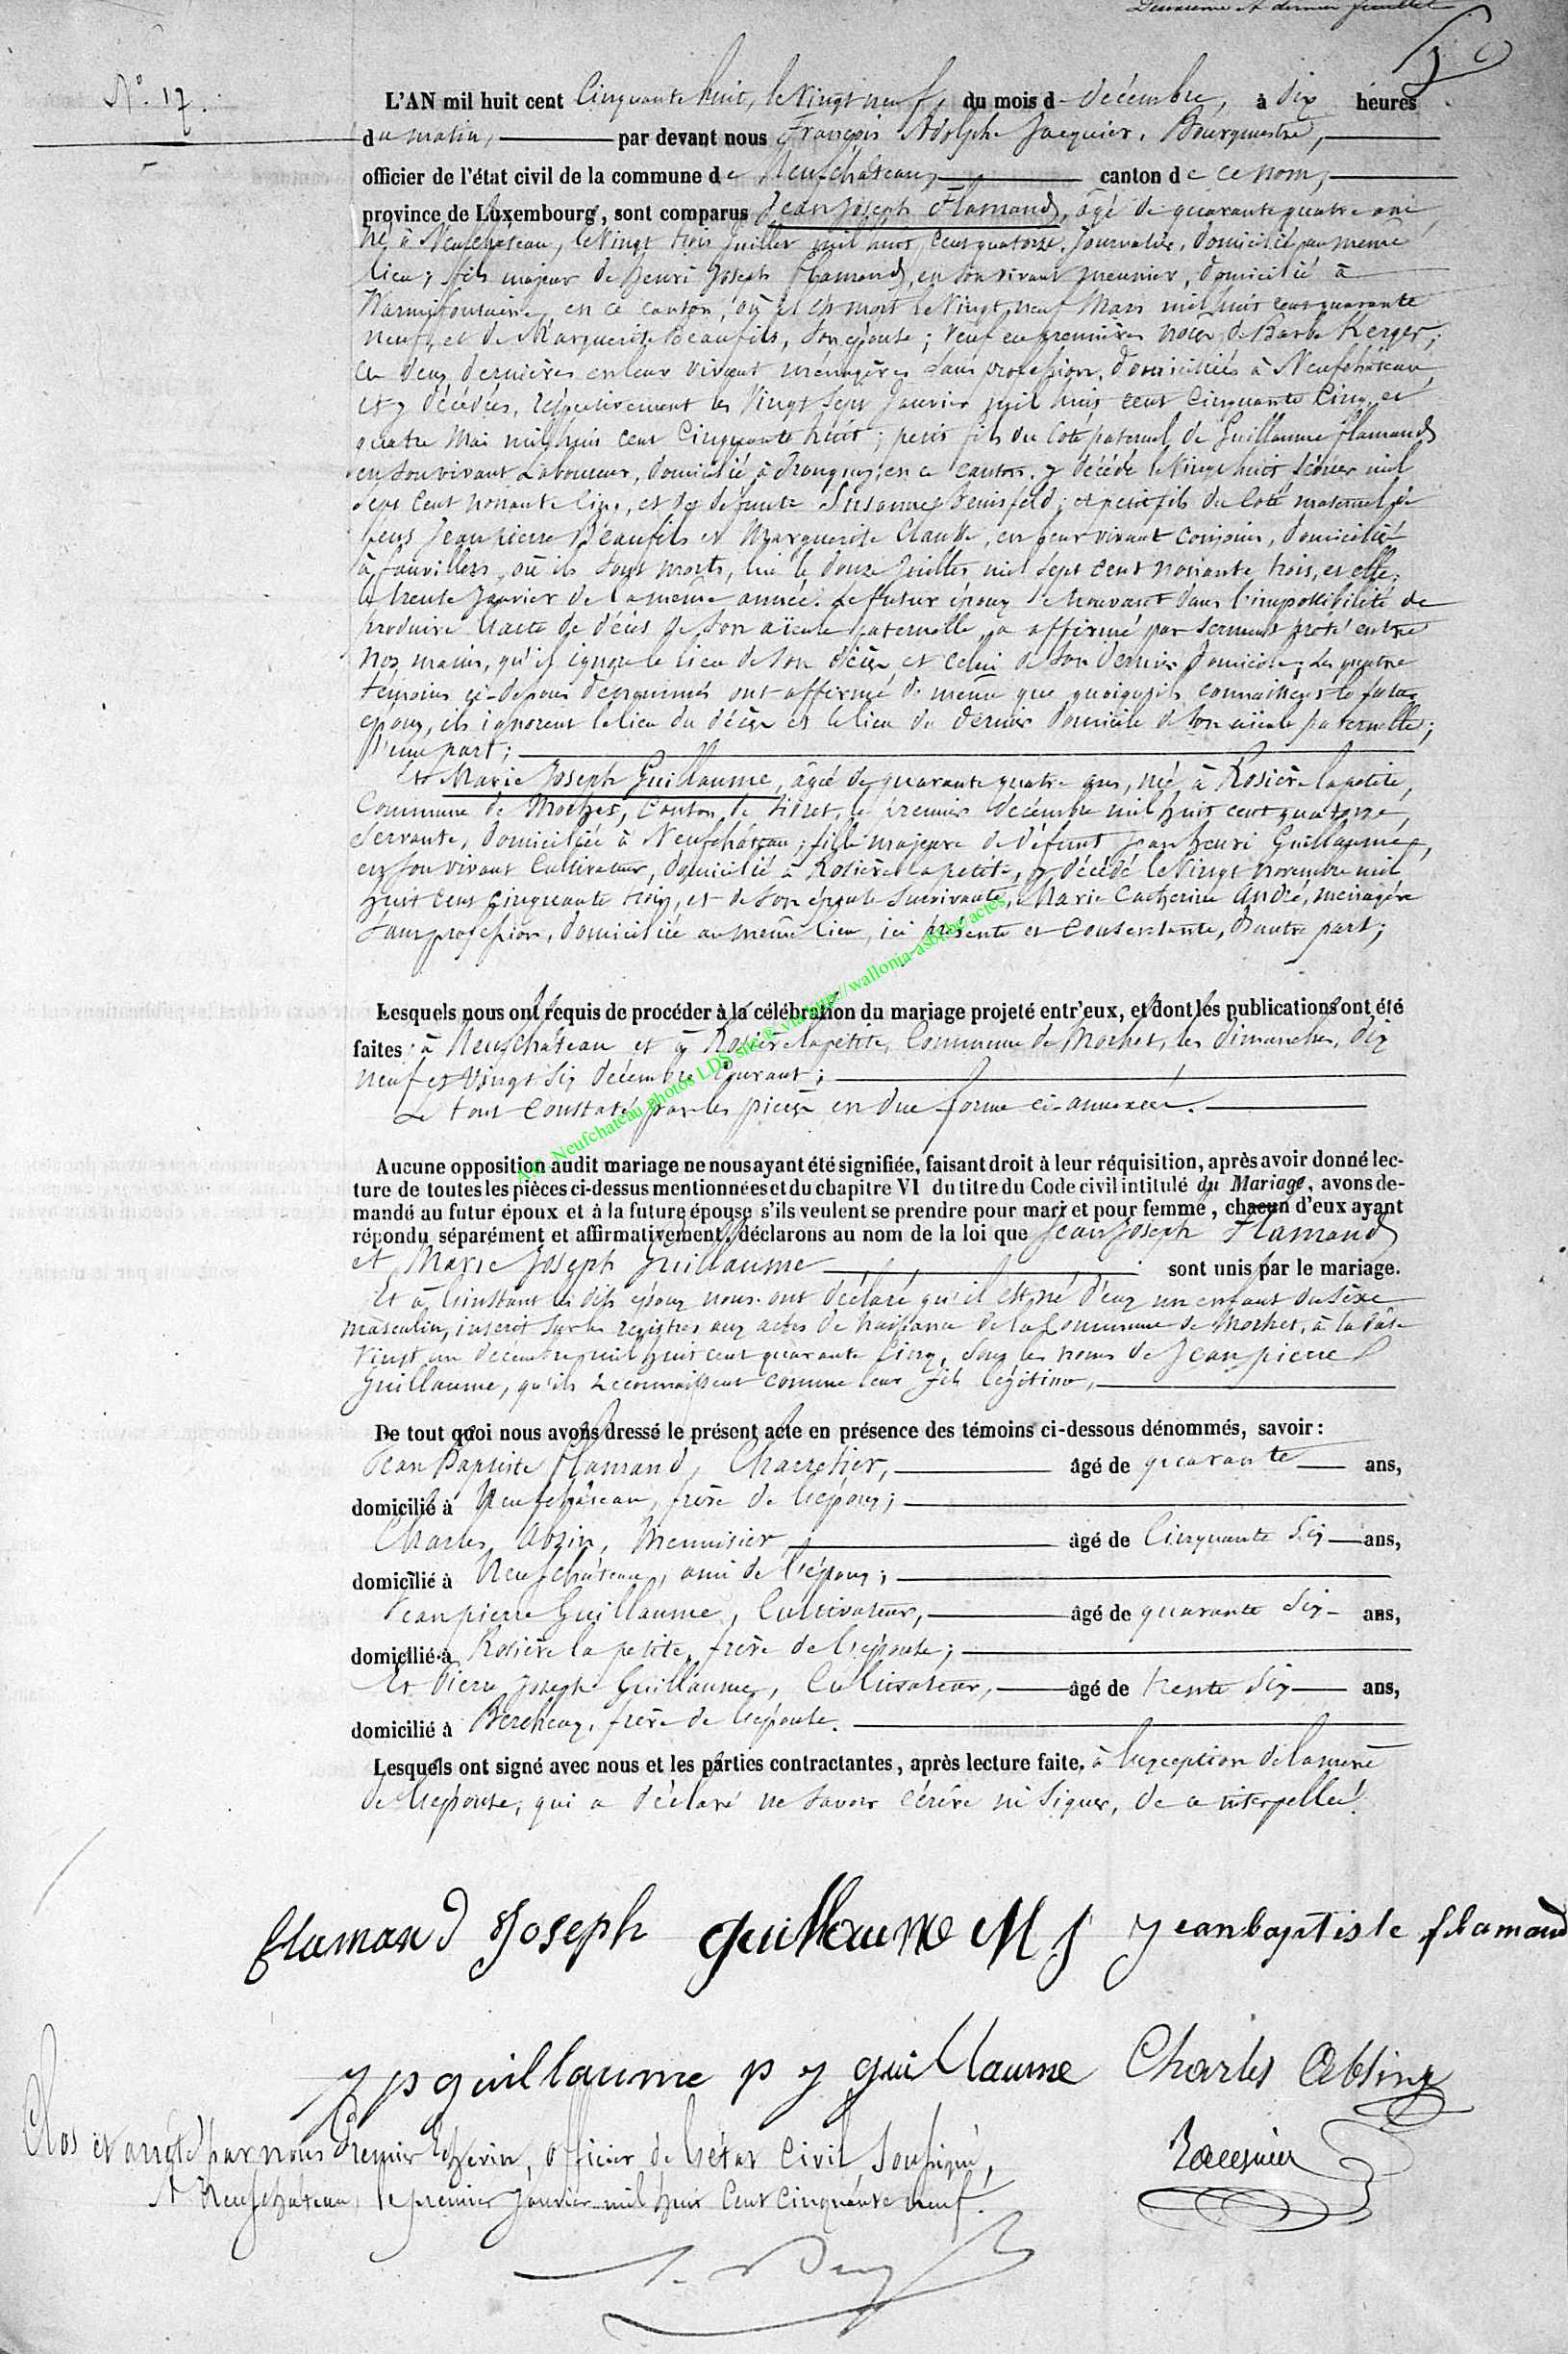 Deuxième et dernier feuillet
N° 17.
L'AN mil huit cent Cinquante huit, le Vingt neuf, du mois d décembre, à dix heures
du matin, par devant nous François Adolphe Jacquier, Bourgmestre,
officier de l'état civil de la commune de Neufchâteau, canton de ce nom,
province de Luxembourg, sont comparus Jean Joseph Flamand, âgé de quarante quatre ans
né à Neufchâteau, le Vingt trois Juillet mil huit cent quatorze, Journalier, domicilié au même
lieu; fils majeur de Henri Joseph Flamand, en son vivant meunier, domicilié à
Warmifontaine, en ce canton, où il est mort le Vingt neuf Mars mil huit cent quarante
neuf, et de Marguerite Beaufils, son épouse; Veuf en premières noces de Barbe Kerger;
Ces deux dernières en leur vivant ménagères sans profession, domiciliées à Neufchâteau,
et y décédées, respectivement les Vingt Sept Janvier mil huit cent Cinquante Cinq et
quatre Mai mil huit cent Cinquante huit; petit fils du Coté paternel de Guillaume Flamand
en son vivant Laboureur, domicilié à en ce canton, y décédé le Vingt huit février mil
sept cent nonante Cinq, et de défunte Susanne ; et petit fils du Coté maternel de
feus Jean pierre Beaufils et Marguerite Claude, en leur vivant conjoins, domiciliés
à fauvillers, où ils sont morts, lui le douze Juillet mil sept cent nonante trois, et elle,
le trente Janvier de la même année. Le futur époux se trouvant dans l'impossibilité de
produire l'acte de décès de son aïeule paternelle, a affirmé par serment prêté entre
nos mains, qu'il ignore le lieu de son décès et celui de son dernier domicile; Les quatre
témoins ci-dessous dénommés ont affirmé de même que quoiqu'ils connaissent le futur
époux, ils ignorent le lieu du décès et le lieu du dernier domicile de son aïeule paternelle;
D'une part;
Et Marie Joseph Guillaume, âgée de quarante quatre ans, née à Rosière la petite,
Commune de Morhet, Canton de Sibret, le premier décembre mil huit cent quatorze,
Servante, domiciliée à Neufchâteau; fille majeure de défunt Jean henri Guillaume,
en son vivant Cultivateur, domicilié à Rosière la petite, y décédé le Vingt novembre mil
huit cent cinquante trois, et de son épouse survivante, Marie Catherine André, ménagère
sans profession, domiciliée au même lieu, ici présente et Consentante, D'autre part;
Lesquels nous ont requis de procéder à la célébration du mariage projeté entr'eux, et dont les publications ont été
faites à Neufchâteau et à Rosière la petite, Commune de Morhet, les dimanches, dix
neuf et Vingt six décembre Courant;
Le tout Constaté par les pièces en due forme ci-annexées.
A.C. Neufchateau photos LDS site @ via http://wallonia-asbl.be/actes
Aucune opposition audit mariage ne nous ayant été signifiée, faisant droit à leur réquisition, après avoir donné lec-
ture de toutes les pièces ci-dessus mentionnées et du chapitre VI du titre du Code civil intitulé du Mariage, avons de-
mandé au futur époux et à la future épouse s'ils veulent se prendre pour mari et pour femme, chacun d'eux ayant
répondu séparément et affirmativement, déclarons au nom de la loi que Jean Joseph Flamand
et Marie Joseph Guillaume sont unis par le mariage.
Et à l'instant les dits époux nous ont déclaré qu'il est né d'eux un enfant du Sèxe
masculin, inscrit sur les registres aux actes de Naissance de la Commune de Morhet, à la date
Vingt un décembre mil huit cent quarante Cinq, sous les noms de Jean pierre
Guillaume, qu'ils reconnaissent comme leur fils légitime,
De tout quoi nous avons dressé le présent acte en présence des témoins ci-dessous dénommés, savoir:
Jean Baptiste Flamand, Charretier, âgé de quarante ans,
domicilié à Neufchâteau, frère de l'époux;
Charles Absin, Menuisier, âgé de Cinquante Six ans,
domicilié à Neufchâteau, ami de l'époux;
Jean pierre Guillaume, Cultivateur, âgé de quarante Six ans,
domicilié à Rosière la petite, frère de l'épouse;
Et Pierre Joseph Guillaume, Cultivateur, âgé de trente Six ans,
domicilié à Bercheux, frère de l'épouse.
Lesquels ont signé avec nous et les parties contractantes, après lecture faite, à l'exception de la mère
de l'épouse, qui a déclaré ne savoir écrire ni signer, de ce interpellée.
flamand Joseph guillaume M J jean baptiste flamand
j p guillaume p j guillaume Charles Absing
Jacquier
Clos et arrêté par nous Premier Echevin, officier de l'état Civil, Soussigné,
A Neufchâteau, le premier Janvier mil huit Cent cinquante neuf.